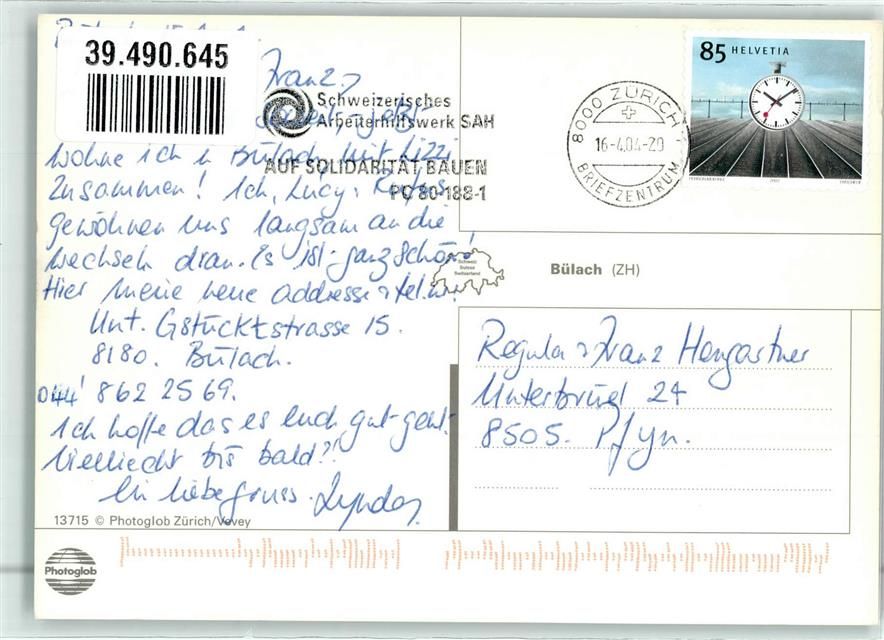 39.490.645
Franz
Schweizerisches
Arbeiterhilfswerk SAH
AUF SOLIDARITÄT BAUEN
PC 80-188-1
8000 ZÜRICH
16-4.04-20
BRIEFZENTRUM
85 HELVETIA
wohne ich in Bülach mit Lizzi
zusammen! Ich, Lucy + Rufus
gewöhnen uns langsam an die
wechseln dran. Es ist ganz schön!
Hier meine neue addresse + tel.nr.
Unt. Gstücktstrasse 15.
8180. Bülach.
044 862 25 69.
Ich hoffe das es euch gut geht.
Vielliecht bis bald?!
Lynda
Schweiz
Suisse
Switzerland
Bülach (ZH)
Regula + Franz Hengartner
Unterbrugl 24
8505. Pfyn.
13715 © Photoglob Zürich/Vevey
Photoglob